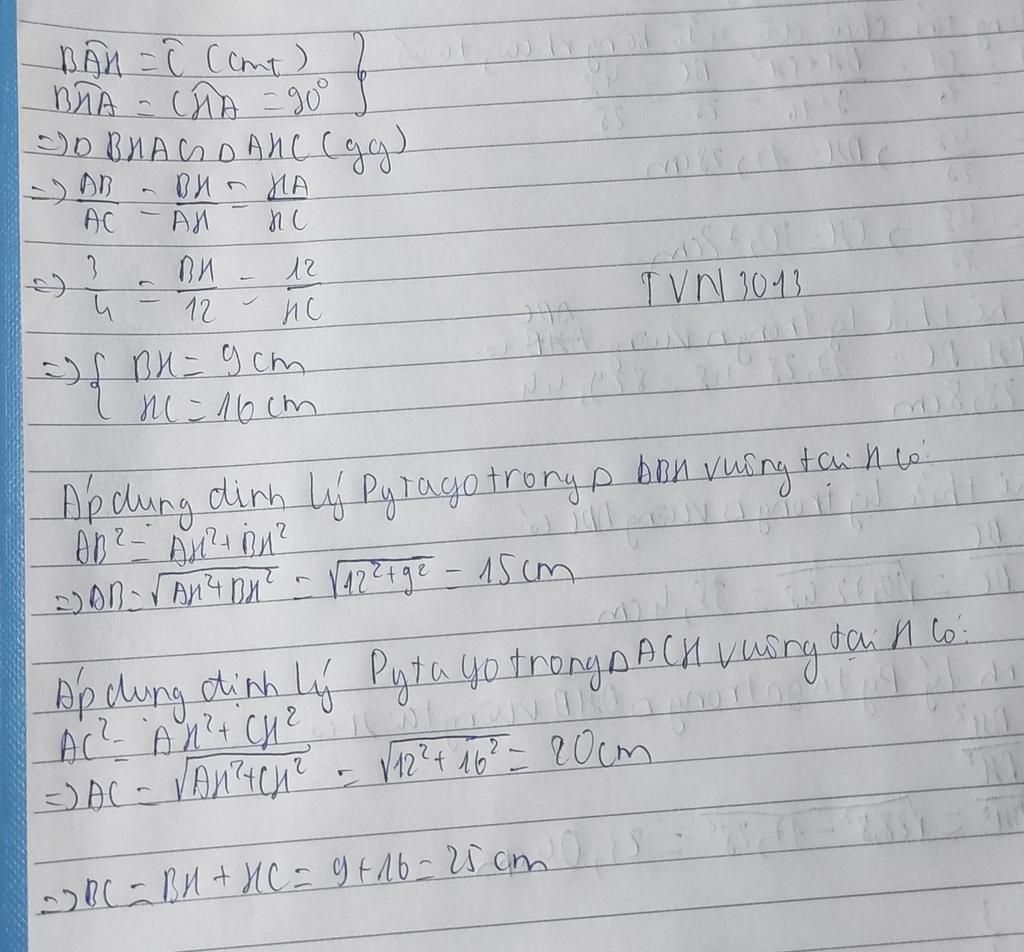 BÂH = Ĉ (cmt) }
BĤA = CĤA = 90°
=> Δ BHA ∽ Δ AHC (gg)
=> AB/AC = BH/AH = HA/HC
=> 3/4 = BH/12 = 12/HC
TVN 3013
=> { BH = 9 cm
HC = 16 cm
Áp dụng định lý Pytago trong Δ ABH vuông tại H có:
AB² = AH² + BH²
=> AB = √AH²+BH² = √12²+9² = 15 cm
Áp dụng định lý Pytago trong Δ ACH vuông tại H có:
AC² = AH² + CH²
=> AC = √AH²+CH² = √12²+16² = 20 cm
=> BC = BH + HC = 9 + 16 = 25 cm